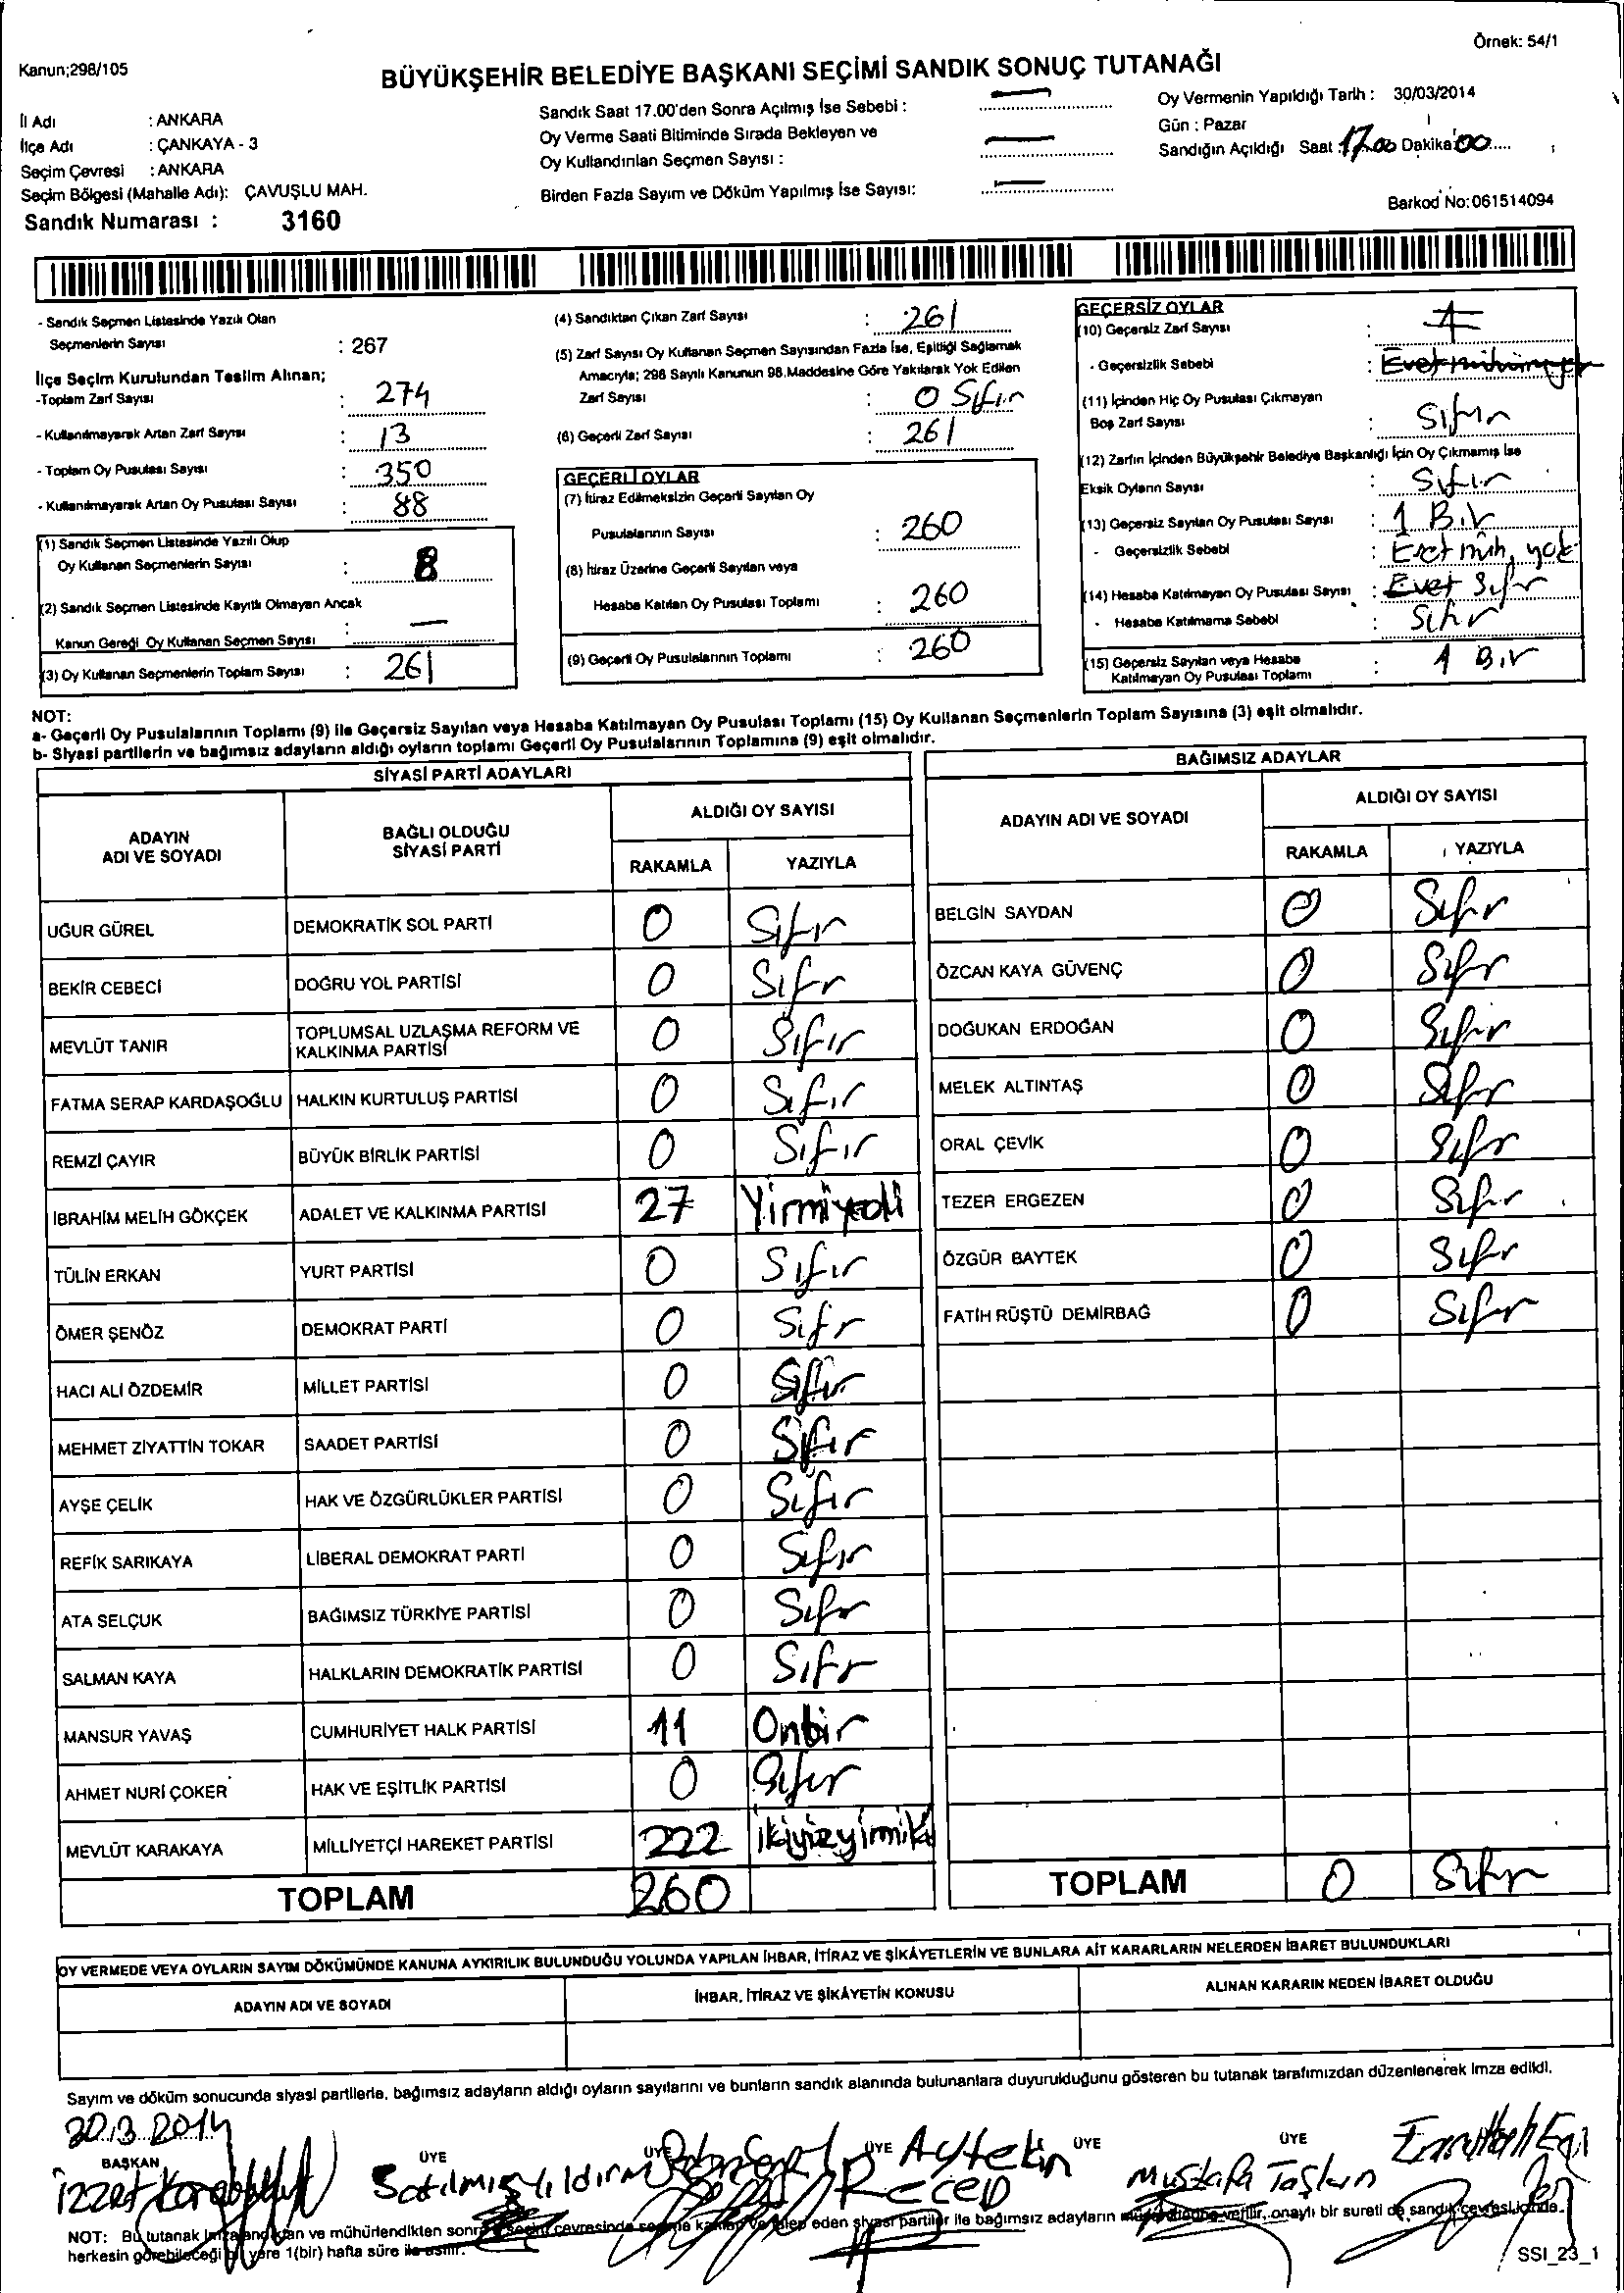 Örnek: 54/1
Kanun;298/105
BÜYÜKŞEHİR BELEDİYE BAŞKANI SEÇİMİ SANDIK SONUÇ TUTANAĞI
İl Adı : ANKARA
İlçe Adı : ÇANKAYA - 3
Seçim Çevresi : ANKARA
Seçim Bölgesi (Mahalle Adı): ÇAVUŞLU MAH.
Sandık Numarası : 3160
Sandık Saat 17.00'den Sonra Açılmış İse Sebebi : —
Oy Verme Saati Bitiminde Sırada Bekleyen ve
Oy Kullandırılan Seçmen Sayısı : —
Birden Fazla Sayım ve Döküm Yapılmış İse Sayısı: —
Oy Vermenin Yapıldığı Tarih : 30/03/2014
Gün : Pazar
Sandığın Açıldığı Saat : 17.00 Dakika: 00
Barkod No:061514094
- Sandık Seçmen Listesinde Yazılı Olan
Seçmenlerin Sayısı : 267
İlçe Seçim Kurulundan Teslim Alınan;
-Toplam Zarf Sayısı : 274
- Kullanılmayarak Artan Zarf Sayısı : 13
- Toplam Oy Pusulası Sayısı : 350
- Kullanılmayarak Artan Oy Pusulası Sayısı : 88
(1) Sandık Seçmen Listesinde Yazılı Olup
Oy Kullanan Seçmenlerin Sayısı : 8
(2) Sandık Seçmen Listesinde Kayıtlı Olmayan Ancak
Kanun Gereği Oy Kullanan Seçmen Sayısı : —
(3) Oy Kullanan Seçmenlerin Toplam Sayısı : 261
(4) Sandıktan Çıkan Zarf Sayısı : 261
(5) Zarf Sayısı Oy Kullanan Seçmen Sayısından Fazla İse, Eşitliği Sağlamak
Amacıyla; 298 Sayılı Kanunun 98.Maddesine Göre Yakılarak Yok Edilen
Zarf Sayısı : 0 Sıfır
(6) Geçerli Zarf Sayısı : 261
GEÇERLİ OYLAR
(7) İtiraz Edilmeksizin Geçerli Sayılan Oy
Pusulalarının Sayısı : 260
(8) İtiraz Üzerine Geçerli Sayılan veya
Hesaba Katılan Oy Pusulası Toplamı : 260
(9) Geçerli Oy Pusulalarının Toplamı : 260
GEÇERSİZ OYLAR
(10) Geçersiz Zarf Sayısı :
- Geçersizlik Sebebi : Evet
(11) İçinden Hiç Oy Pusulası Çıkmayan
Boş Zarf Sayısı : Sıfır
(12) Zarfın İçinden Büyükşehir Belediye Başkanlığı İçin Oy Çıkmamış İse
Eksik Oyların Sayısı : Sıfır
(13) Geçersiz Sayılan Oy Pusulası Sayısı : 1 Bir
- Geçersizlik Sebebi : Evet müh, yok
(14) Hesaba Katılmayan Oy Pusulası Sayısı : Evet Sıfır
- Hesaba Katılmama Sebebi : Sıfır
(15) Geçersiz Sayılan veya Hesaba
Katılmayan Oy Pusulası Toplamı : 1 Bir
NOT:
a- Geçerli Oy Pusulalarının Toplamı (9) ile Geçersiz Sayılan veya Hesaba Katılmayan Oy Pusulası Toplamı (15) Oy Kullanan Seçmenlerin Toplam Sayısına (3) eşit olmalıdır.
b- Siyasi partilerin ve bağımsız adayların aldığı oyların toplamı Geçerli Oy Pusulalarının Toplamına (9) eşit olmalıdır.
SİYASİ PARTİ ADAYLARI
ADAYIN ADI VE SOYADI BAĞLI OLDUĞU SİYASİ PARTİ ALDIĞI OY SAYISI
RAKAMLA YAZIYLA
UĞUR GÜREL DEMOKRATİK SOL PARTİ 0 Sıfır
BEKİR CEBECİ DOĞRU YOL PARTİSİ 0 Sıfır
MEVLÜT TANIR TOPLUMSAL UZLAŞMA REFORM VE KALKINMA PARTİSİ 0 Sıfır
FATMA SERAP KARDAŞOĞLU HALKIN KURTULUŞ PARTİSİ 0 Sıfır
REMZİ ÇAYIR BÜYÜK BİRLİK PARTİSİ 0 Sıfır
İBRAHİM MELİH GÖKÇEK ADALET VE KALKINMA PARTİSİ 27 Yirmiyedi
TÜLİN ERKAN YURT PARTİSİ 0 Sıfır
ÖMER ŞENÖZ DEMOKRAT PARTİ 0 Sıfır
HACI ALİ ÖZDEMİR MİLLET PARTİSİ 0 Sıfır
MEHMET ZİYATTİN TOKAR SAADET PARTİSİ 0 Sıfır
AYŞE ÇELİK HAK VE ÖZGÜRLÜKLER PARTİSİ 0 Sıfır
REFİK SARIKAYA LİBERAL DEMOKRAT PARTİ 0 Sıfır
ATA SELÇUK BAĞIMSIZ TÜRKİYE PARTİSİ 0 Sıfır
SALMAN KAYA HALKLARIN DEMOKRATİK PARTİSİ 0 Sıfır
MANSUR YAVAŞ CUMHURİYET HALK PARTİSİ 11 Onbir
AHMET NURİ ÇOKER HAK VE EŞİTLİK PARTİSİ 0 Sıfır
MEVLÜT KARAKAYA MİLLİYETÇİ HAREKET PARTİSİ 222 ikiyüzyirmiki
TOPLAM 260
BAĞIMSIZ ADAYLAR
ADAYIN ADI VE SOYADI ALDIĞI OY SAYISI
RAKAMLA YAZIYLA
BELGİN SAYDAN 0 Sıfır
ÖZCAN KAYA GÜVENÇ 0 Sıfır
DOĞUKAN ERDOĞAN 0 Sıfır
MELEK ALTINTAŞ 0 Sıfır
ORAL ÇEVİK 0 Sıfır
TEZER ERGEZEN 0 Sıfır
ÖZGÜR BAYTEK 0 Sıfır
FATİH RÜŞTÜ DEMİRBAĞ 0 Sıfır
TOPLAM 0 Sıfır
OY VERMEDE VEYA OYLARIN SAYIM DÖKÜMÜNDE KANUNA AYKIRILIK BULUNDUĞU YOLUNDA YAPILAN İHBAR, İTİRAZ VE ŞİKÂYETLERİN VE BUNLARA AİT KARARLARIN NELERDEN İBARET BULUNDUKLARI
ADAYIN ADI VE SOYADI İHBAR, İTİRAZ VE ŞİKÂYETİN KONUSU ALINAN KARARIN NEDEN İBARET OLDUĞU
Sayım ve döküm sonucunda siyasi partilerle, bağımsız adayların aldığı oyların sayılarını ve bunların sandık alanında bulunanlara duyurulduğunu gösteren bu tutanak tarafımızdan düzenlenerek imza edildi.
30.3.2014
BAŞKAN ÜYE ÜYE ÜYE ÜYE ÜYE
İzzet Satılmış Yıldırım Aytekin Recep Mustafa Taşkın
NOT: Bu tutanak imzalandıktan ve mühürlendikten sonra seçim çevresinde seçime katılan ve talep eden siyasi partiler ile bağımsız adayların müşahidine verilir, onaylı bir sureti de sandık çevresi içinde
herkesin görebileceği bir yere 1(bir) hafta süre ile asılır.
SSI_23_1